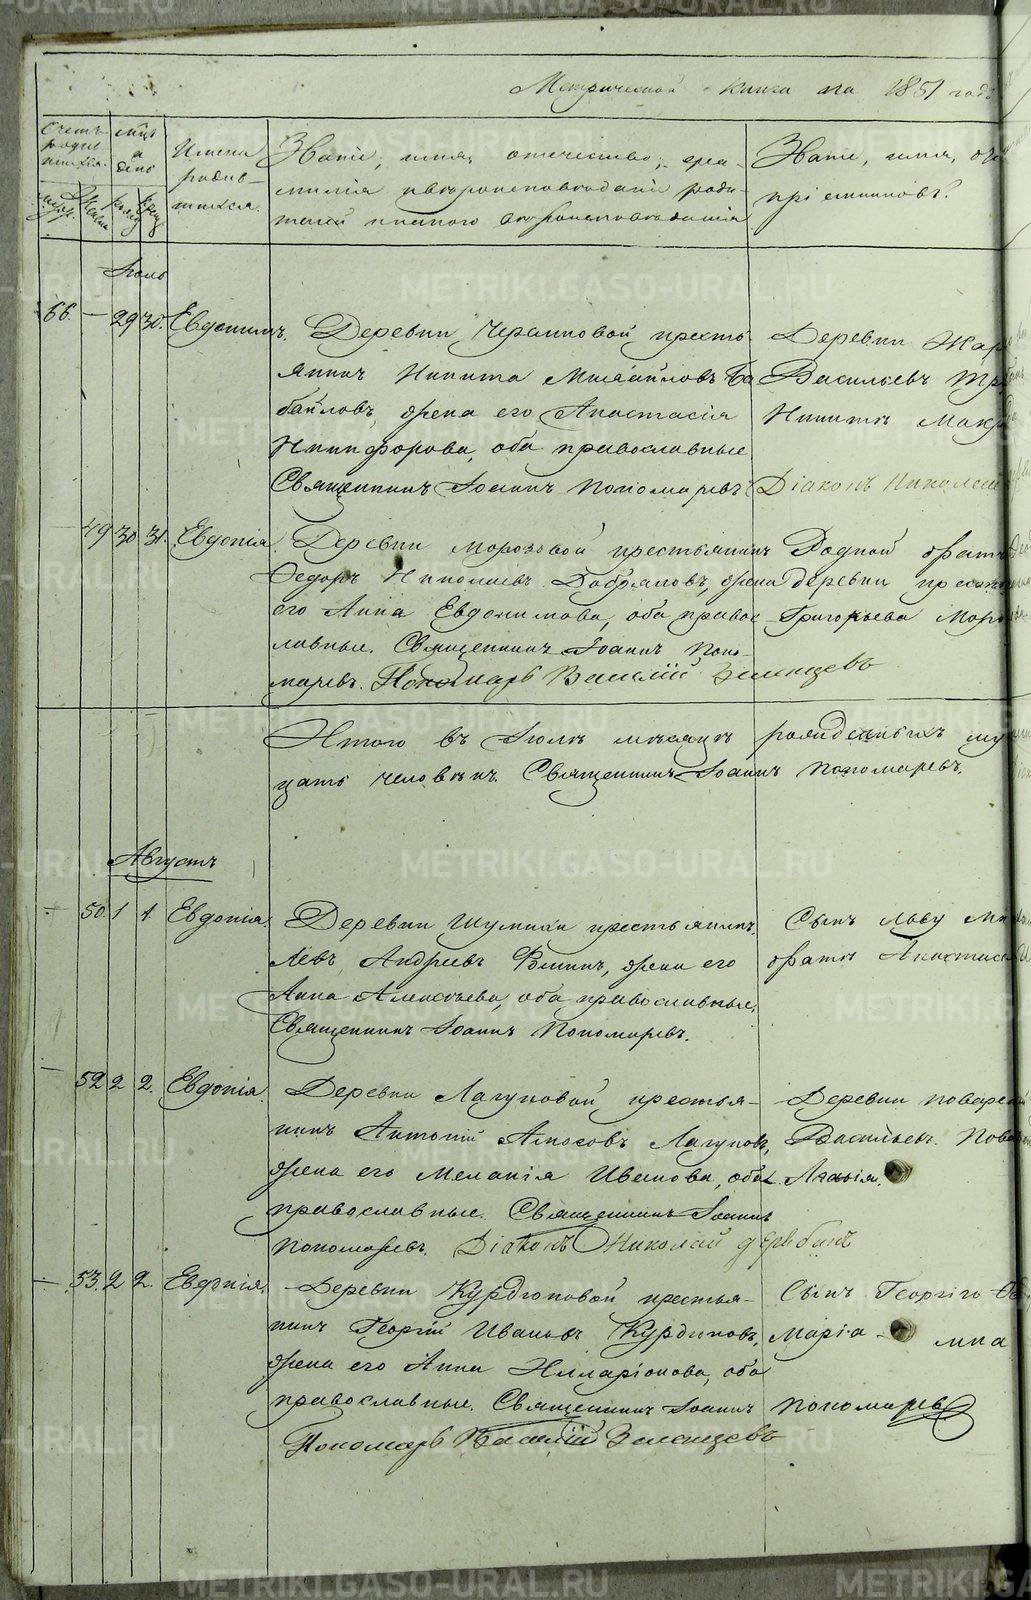 Метрической книги на 1851 годъ
Счетъ родив шихся.
мцъ и день
Имена родив шихся.
Званіе, имя, отечество, фа
милія и вѣроисповѣданіе роди
телей и какого вѣроисповѣданія
Званіе, имя, оте
пріемниковъ.
Іюль
66. — 29 30. Евдокимъ.
Деревни крестья
янинъ Никита Михайловъ Ба
байловъ, жена его Анастасія
Никифорова, оба православные
Священникъ Іоаннъ Пономаревъ
Деревни Жар
Васильевъ
Никита Мака
Діаконъ Николай
49 30 31. Евдокія.
Деревни Морозовой крестьянинъ
Федоръ Николаевъ жена
его Анна Евдокимова, оба правос
лавные. Священникъ Іоаннъ Поно-
маревъ. Пономарь Василій Зеленцовъ
Родной братъ
деревни крестья
Григорьева Моро
Итого въ Іюлѣ мѣсяцѣ рожденныхъ му
цать человѣкъ. Священникъ Іоаннъ Пономаревъ.
Августъ
50. 1 1. Евдокія.
Деревни крестьянинъ
Левъ Андреевъ жена его
Анна Алексѣева, оба православные.
Священникъ Іоаннъ Пономаревъ.
Сынъ Льву
братъ Анастас
52 2 2. Евдокія.
Деревни Лагуновой крестья-
нинъ Антоній Амосовъ Лагуновъ,
жена его Меланія Иванова, оба
православные. Священникъ Іоаннъ
Пономаревъ. Діаконъ Николай Дерябинъ
Деревни Поварен
Васильевъ. Пова
Агафія.
53. 2 2. Евдокія.
Деревни Курдюковой крестья-
нинъ Георгій Ивановъ Курдюковъ,
жена его Анна Илларіонова, оба
православные. Священникъ Іоаннъ Пономаревъ
Пономарь Василій Зеленцовъ
Сынъ Георгіго
Марія
METRIKI.GASO-URAL.RU